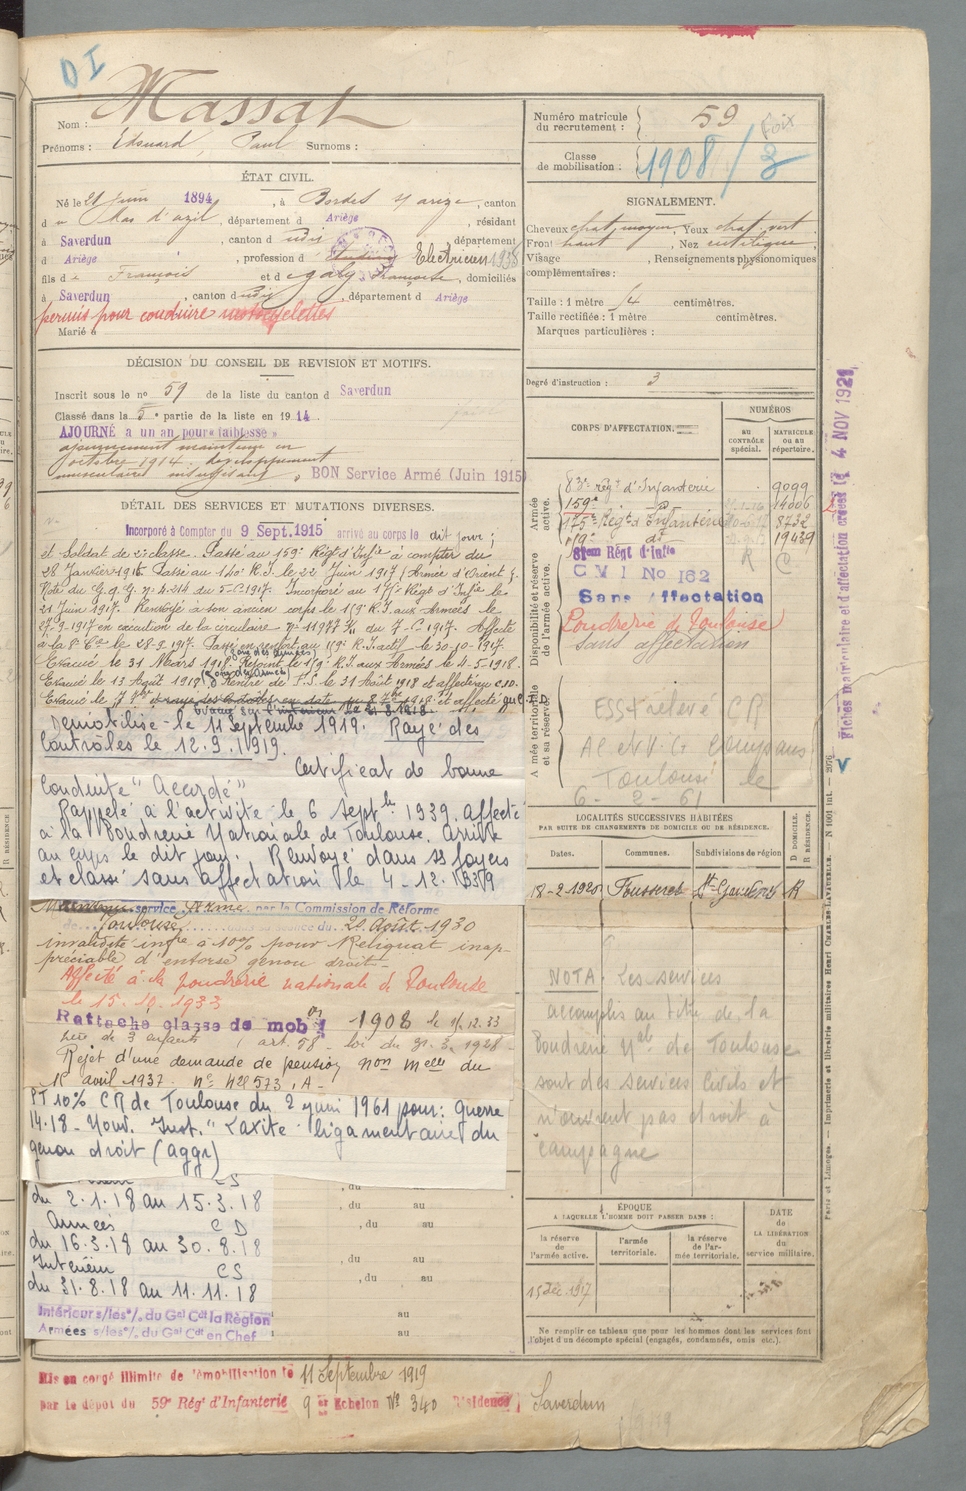 D I
Nom : Massat
Prénoms : Edouard, Paul Surnoms :
ÉTAT CIVIL.
Né le 21 juin 1894, à Bordes s/ arize, canton
d u Mas d'azil, département d Ariège, résidant
à Saverdun, canton d udis, département
d Ariège, profession d Electricien 1938
fils d e François et d e Galy Françoise, domiciliés
à Saverdun, canton d udis, département d Ariège
permis pour conduire motocyclettes
Marié à
DÉCISION DU CONSEIL DE REVISION ET MOTIFS.
Inscrit sous le n° 59 de la liste du canton d Saverdun
Classé dans la 5e partie de la liste en 1914
AJOURNÉ à un an pour « faiblesse »
ajournement maintenu en
octobre 1914. développement
musculaire insuffisant. BON Service Armé (Juin 1915)
DÉTAIL DES SERVICES ET MUTATIONS DIVERSES.
Incorporé à Compter du 9 Sept. 1915 arrivé au corps le dit jour ;
et Soldat de 2e classe. Passé au 159e Régt d'Infie à compter du
28 Janvier 1916. Passé au 140e R.I. le 22 Juin 1917 (Armée d'Orient).
Note du G.Q.G. n° 4.214 du 5-6-1917. Incorporé au 175e Régt d'Infie le
21 Juin 1917. Renvoyé à son ancien corps le 119e R.I. aux Armées le
27-9-1917 en exécution de la circulaire n° 11977 K/1 du 7-6-1917. Affecté
à la 8e Cie le 28-9-1917. Passé en renfort au 119e R.I. actif le 30-10-1917.
Evacué le 31 Mars 1918 (Zone des armées). Rejoint le 119e R.I. aux Armées le 4-5-1918.
Evacué le 13 Août 1918 (Zone des armées). Rentré de l'I.S. le 31 Août 1918 et affecté au C.I.D.
Démobilisé le 11 Septembre 1919. Rayé des
Contrôles le 12.9.1919.
Certificat de bonne
Conduite "Accordé"
Rappelé à l'activité le 6 septbre 1939. affecté
à la Poudrerie Nationale de Toulouse. arrivé
au corps le dit jour. Renvoyé dans ses foyers
et classé sans affectation le 4-12-1939
Maintenu service Armé par la Commission de Réforme
de Toulouse dans sa séance du 20 Août 1930
invalidité infre à 10% pour Reliquat inap-
préciable d'entorse genou droit-
Affecté à la poudrerie nationale de Toulouse
le 15.10.1933
Rattaché classe de mobon 1908 le 1/12.33
père de 3 enfants (art. 58 - loi du 31.3.1928 -
Rejet d'une demande de pension non melle du
1er avril 1937. n° 428573, A-
PT 10% CR de Toulouse du 2 juin 1961 pour : guerre
14-18 - Nouv. Inst. "Laxité ligamentaire du
genou droit (aggr)
CS
du 2.1.18 au 15.3.18
Armées C D
du 16.3.18 au 30.8.18
Intérieur CS
du 31.8.18 au 11.11.18
Intérieur s/les°/. du Gal Cdt la Région
Armées s/les°/. du Gal Cdt en Chef
, du au
, du au
, du au
, du au
, du au
au
au
Mis en congé illimité de démobilisation le 11 Septembre 1919
par le dépôt du 59e Régt d'Infanterie 9 er Echelon N° 340 Résidence Saverdun
Numéro matricule
du recrutement : 59 Foix
Classe
de mobilisation : 1908/3
SIGNALEMENT.
Cheveux chat. moyen, Yeux chat. vert
Front haut, Nez rectiligne,
Visage , Renseignements physionomiques
complémentaires :
Taille : 1 mètre centimètres.
Taille rectifiée : 1 mètre centimètres.
Marques particulières :
Degré d'instruction : 3
CORPS D'AFFECTATION.
NUMÉROS
au
CONTRÔLE
spécial.
MATRICULE
ou au
répertoire.
Armée
active.
83e régt d'Infanterie 9099
159e do 14006
175e Régt d'Infanterie 8732
119e do 19439
Disponibilité et réserve
de l'armée active.
Siem Régt d'Infie R C
C M I No 162
Sans Affectation
Poudrerie de Toulouse
sans affectation
Armée territoriale
et sa réserve.
ESS relevé CR
AC et V. G Compans
Toulouse le
6-2-61
LOCALITÉS SUCCESSIVES HABITÉES
PAR SUITE DE CHANGEMENTS DE DOMICILE OU DE RÉSIDENCE.
Dates. Communes. Subdivisions de région D. DOMICILE. R. RÉSIDENCE.
18-2-1925 Fousseret St-Gaudens R
NOTA. Les services
accomplis au titre de la
Poudrerie Nale de Toulouse
sont des services Civils et
n'ouvrent pas droit à
campagne
ÉPOQUE
A LAQUELLE L'HOMME DOIT PASSER DANS :
la réserve
de
l'armée active.
l'armée
territoriale.
la réserve
de l'ar-
mée territoriale.
DATE
de
LA LIBÉRATION
du
service militaire.
15 Déc. 1917
Ne remplir ce tableau que pour les hommes dont les services font
l'objet d'un décompte spécial (engagés, condamnés, omis etc.).
Fiches matriculaire et d'affectation créées le 4 NOV 1921
Paris et Limoges. — Imprimerie et librairie militaires Henri CHARLES-LAVAUZELLE. — N 1001 int. — 2076